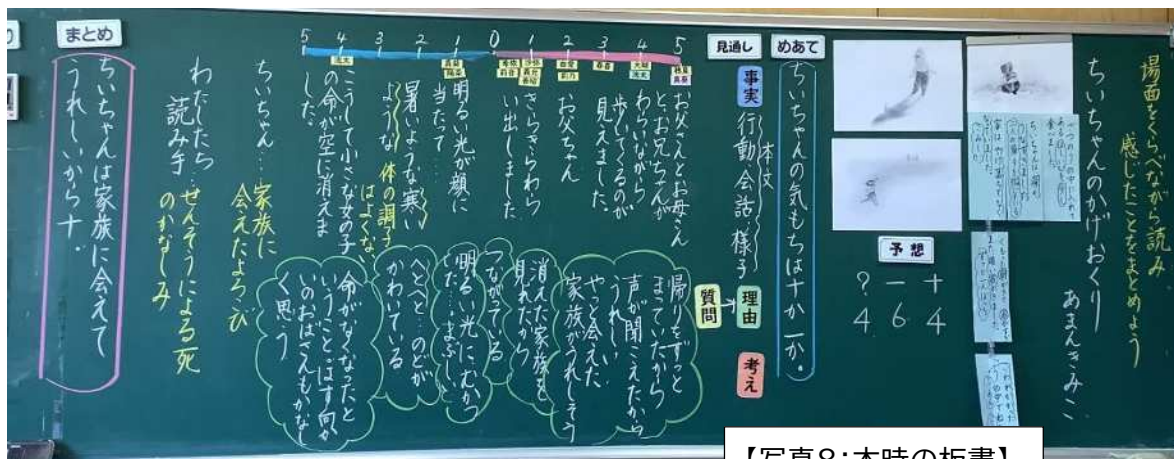 場面をくらべながら読み
感じたことをまとめよう
ちいちゃんのかげおくり
あまんきみこ
予想
+ 4
− 6
? 4
めあて
ちいちゃんの気もちは+か−か。
見通し
事実
本文
行動 会話 様子
理由
質問
考え
5
4
3
2
1
0
1
2
3
4
5
お父さんとお母さん
と、お兄ちゃんが
わらいながら
歩いてくるのが
見えました。
お父ちゃん
きらきらわら
い出しました
明るい光が顔に
当たって…
暑いような寒い
ような
体の調子
はよくない
こうして小さな女の子
の命が空に消えま
した。
帰りをずっと
まっていたから
声が聞こえたから
うれしい
やっと会えた
家族がうれしそう
消えた家族も
見れたから
つながっている
明るい光にむかつ
まぶしい
へとへと…のどが
かわいている
命がなくなったと
いうこと
く思う
ちいちゃん…家族に
会えたよろこび
わたしたち
読み手…せんそうによる死
のかなしみ
まとめ
ちいちゃんは家族に会えて
うれしいから+。
【写真8:本時の板書】